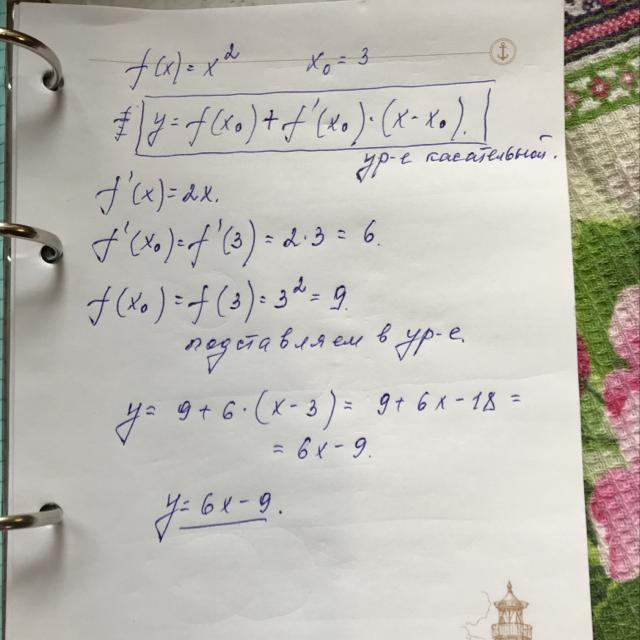 f(x) = x² x₀ = 3
y = f(x₀) + f'(x₀) · (x - x₀).
ур-е касательной.
f'(x) = 2x.
f'(x₀) = f'(3) = 2·3 = 6.
f(x₀) = f(3) = 3² = 9.
подставляем в ур-е.
y = 9 + 6 · (x - 3) = 9 + 6x - 18 =
= 6x - 9.
y = 6x - 9.